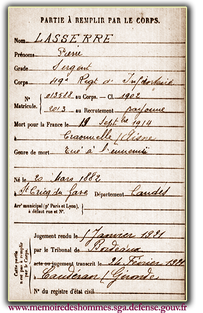 PARTIE À REMPLIR PAR LE CORPS.
Nom LASSERRE
Prénoms Pierre
Grade Sergent
49e Régt d'Infanterie
N° au Corps. — Cl. 1902
Matricule. au Recrutement Bayonne
Mort pour la France le Septbre 1914
à Craonnelle (Aisne)
Genre de mort Tué à l'ennemi
Né le 20 Mars 1882
à Département Landes
Arr' municipal (p' Paris et Lyon),
à défaut rue et N°.
Jugement rendu le Janvier 1921
par le Tribunal de Bordeaux
acte ou jugement transcrit le Février 1921
à Caudéran (Gironde)
N° du registre d'état civil
www.memoiredeshommes.sga.defense.gouv.fr